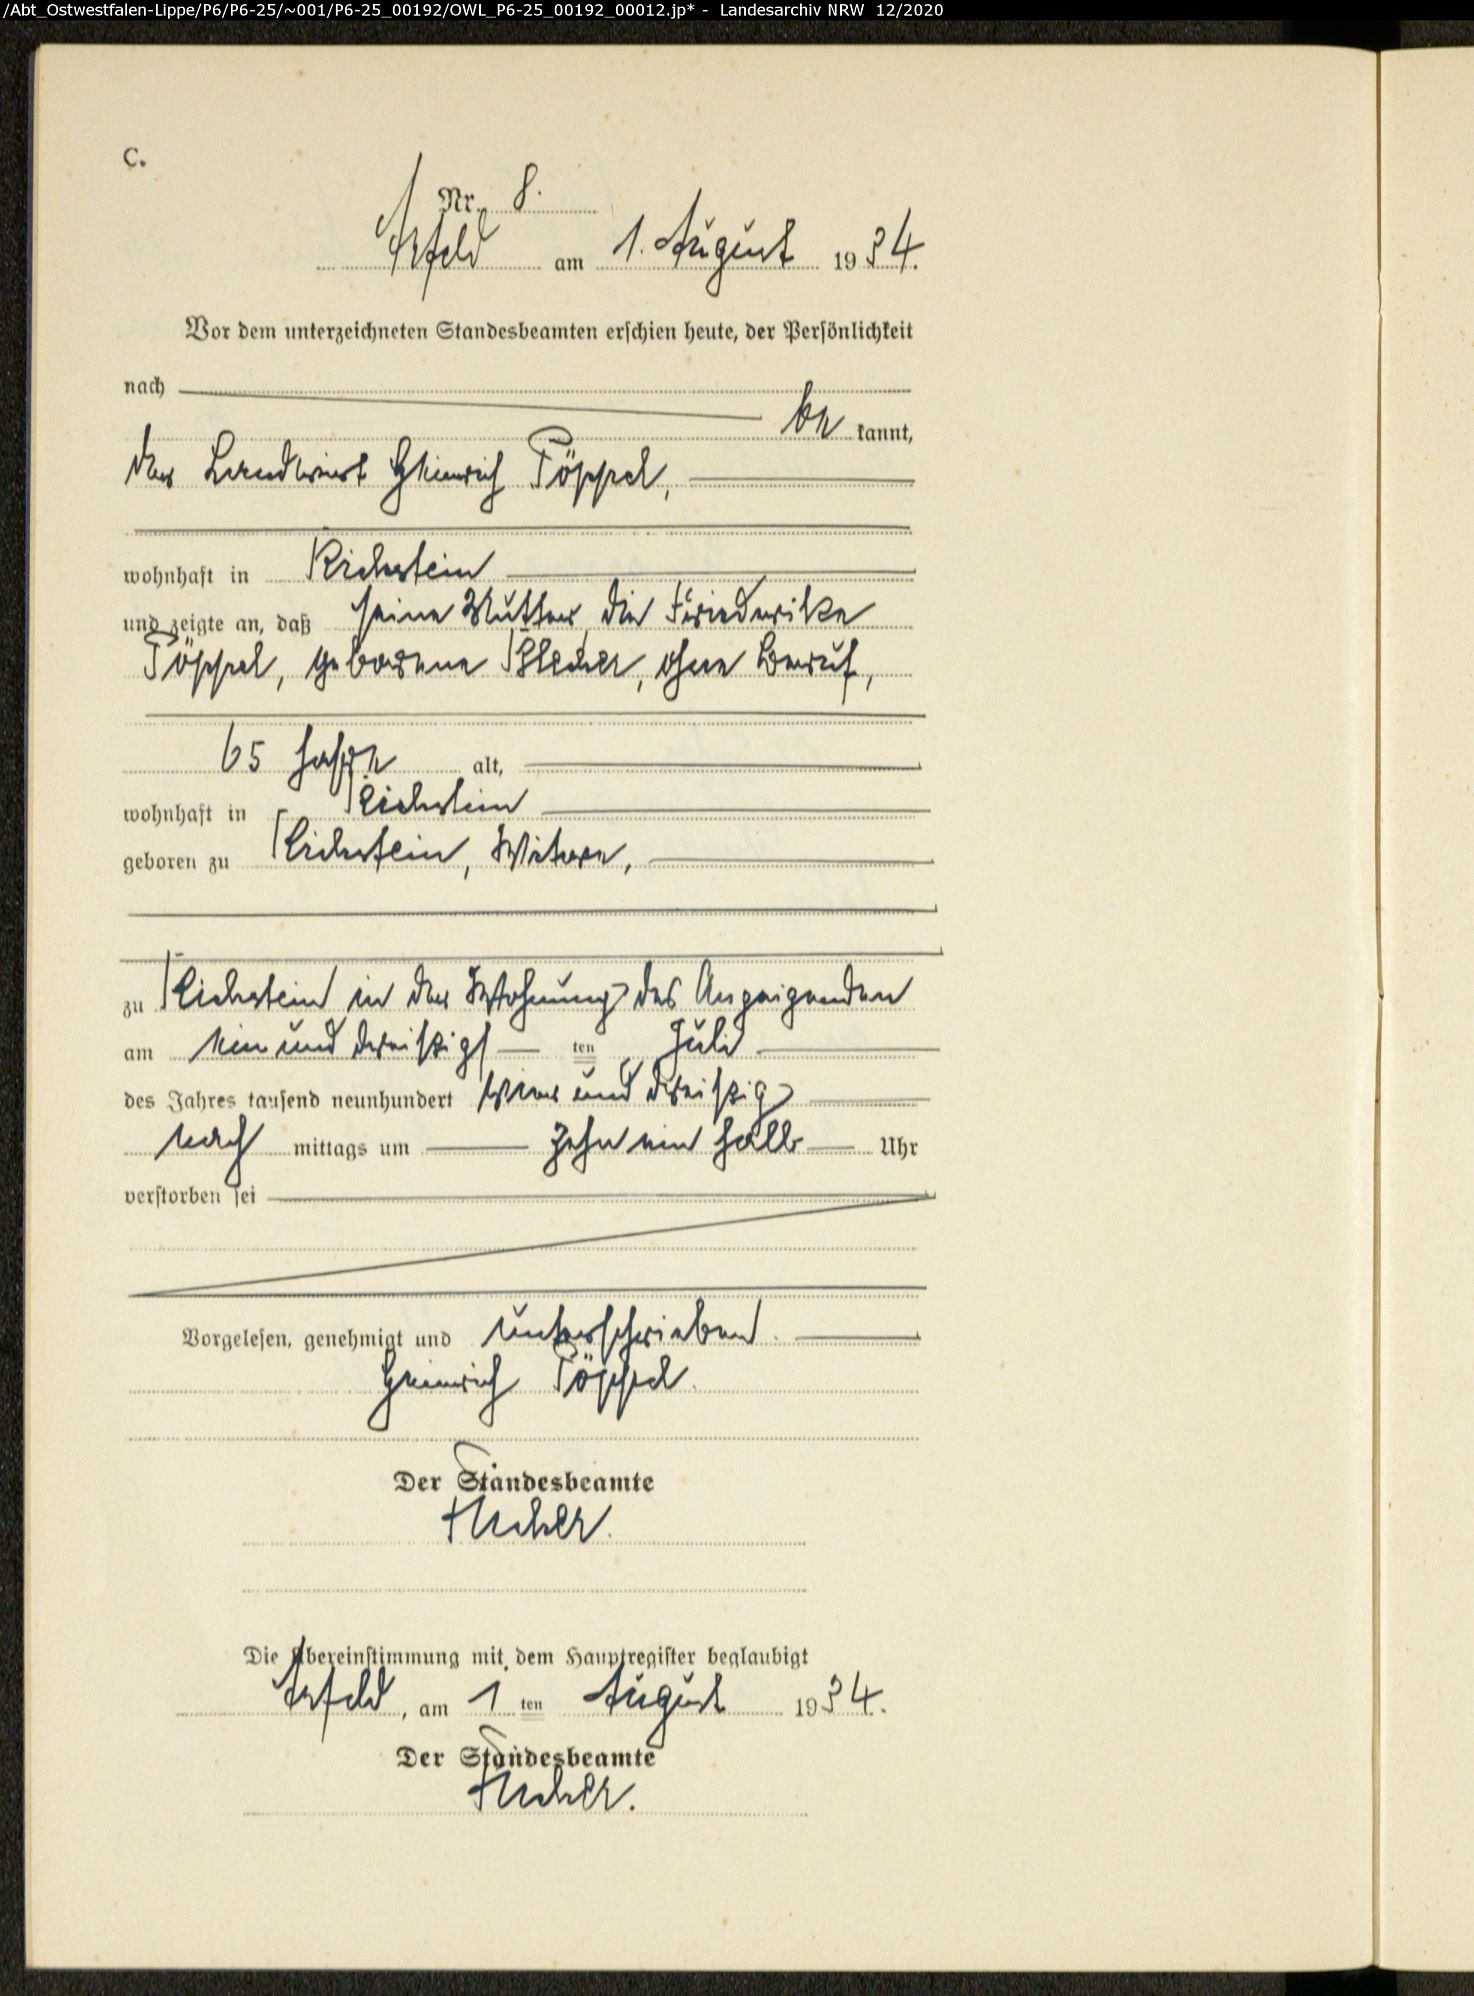 /Abt_Ostwestfalen-Lippe/P6/P6-25/~001/P6-25_00192/OWL_P6-25_00192_00012.jp* - Landesarchiv NRW 12/2020
C.
Nr. 8.
Arfeld am 1. August 1934.
Vor dem unterzeichneten Standesbeamten erschien heute, der Persönlichkeit
nach
be kannt,
der Landwirt Heinrich Töppel,
wohnhaft in Richstein
und zeigte an, daß seine Mutter die Friederike
Töppel, geborene, ohne Beruf,
65 Jahre alt,
wohnhaft in Richstein
geboren zu Richstein, Witwe,
zu Richstein in der Wohnung des Anzeigenden
am ein und dreißigs ten Juli
des Jahres tausend neunhundert vier und dreißig
nach mittags um zehn ein halb Uhr
verstorben sei
Vorgelesen, genehmigt und unterschrieben.
Heinrich Töppel.
Der Standesbeamte
Die Übereinstimmung mit dem Hauptregister beglaubigt
Arfeld, am 1 ten August 1934.
Der Standesbeamte